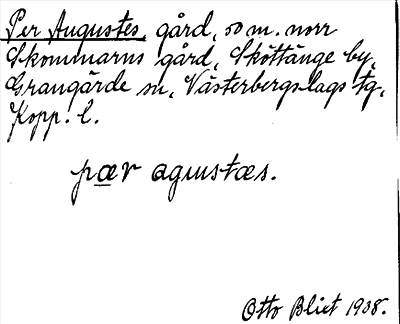 Per Augustes gård, 50 m. norr
Skommarns gård, Sköttänge by,
Grangärde sn, Västerbergslags tg,
Kopp. l.
pær agustæs.
Otto Blixt 1938.